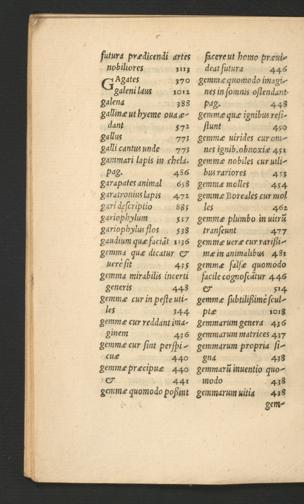 futura prædicendi artes
nobiliores 1113
GAgates 370
galeni laus 1012
galena 388
gallinæ ut hyeme oua æ-
dant 572
gallus 773
galli cantus unde 773
gammari lapis in chela.
pag. 486
garapates animal 658
garatronius lapis 472
gari descriptio 885
gariophylum 527
gariophyli flos 538
gaudium quæ faciāt 1136
gemma quæ dicatur &
uerè sit 435
gemma mirabilis incerti
generis 448
gemmæ cur in peste uti-
les 344
gemmæ cur reddant ima-
ginem 436
gemmæ cur sint perspi-
cuæ 440
gemmæ præcipuæ 440
& 441
gemmæ quomodo possint
facere ut homo præui-
deat futura 446
gemmæ quomodo imagi-
nes in somnis ostendant
pag. 448
gemmæ quæ ignibus resi-
stunt 450
gemmæ uirides cur om-
nes ignib. obnoxiæ 451
gemmæ nobiles cur uili-
bus rariores 453
gemmæ molles 454
gemmæ Boreales cur mol
les 462
gemmæ plumbo in uitrū
transeunt 477
gemmæ ueræ cur rarissi-
mæ in animalibus 481
gemmæ falsæ quomodo
facile cognoscātur 446
& 514
gemmæ subtilissimè scul-
ptæ 1018
gemmarum genera 436
gemmarum matrices 437
gemmarum propria si-
gna 438
gemmarū inuentio quo-
modo 438
gemmarum uitia 438
gem-